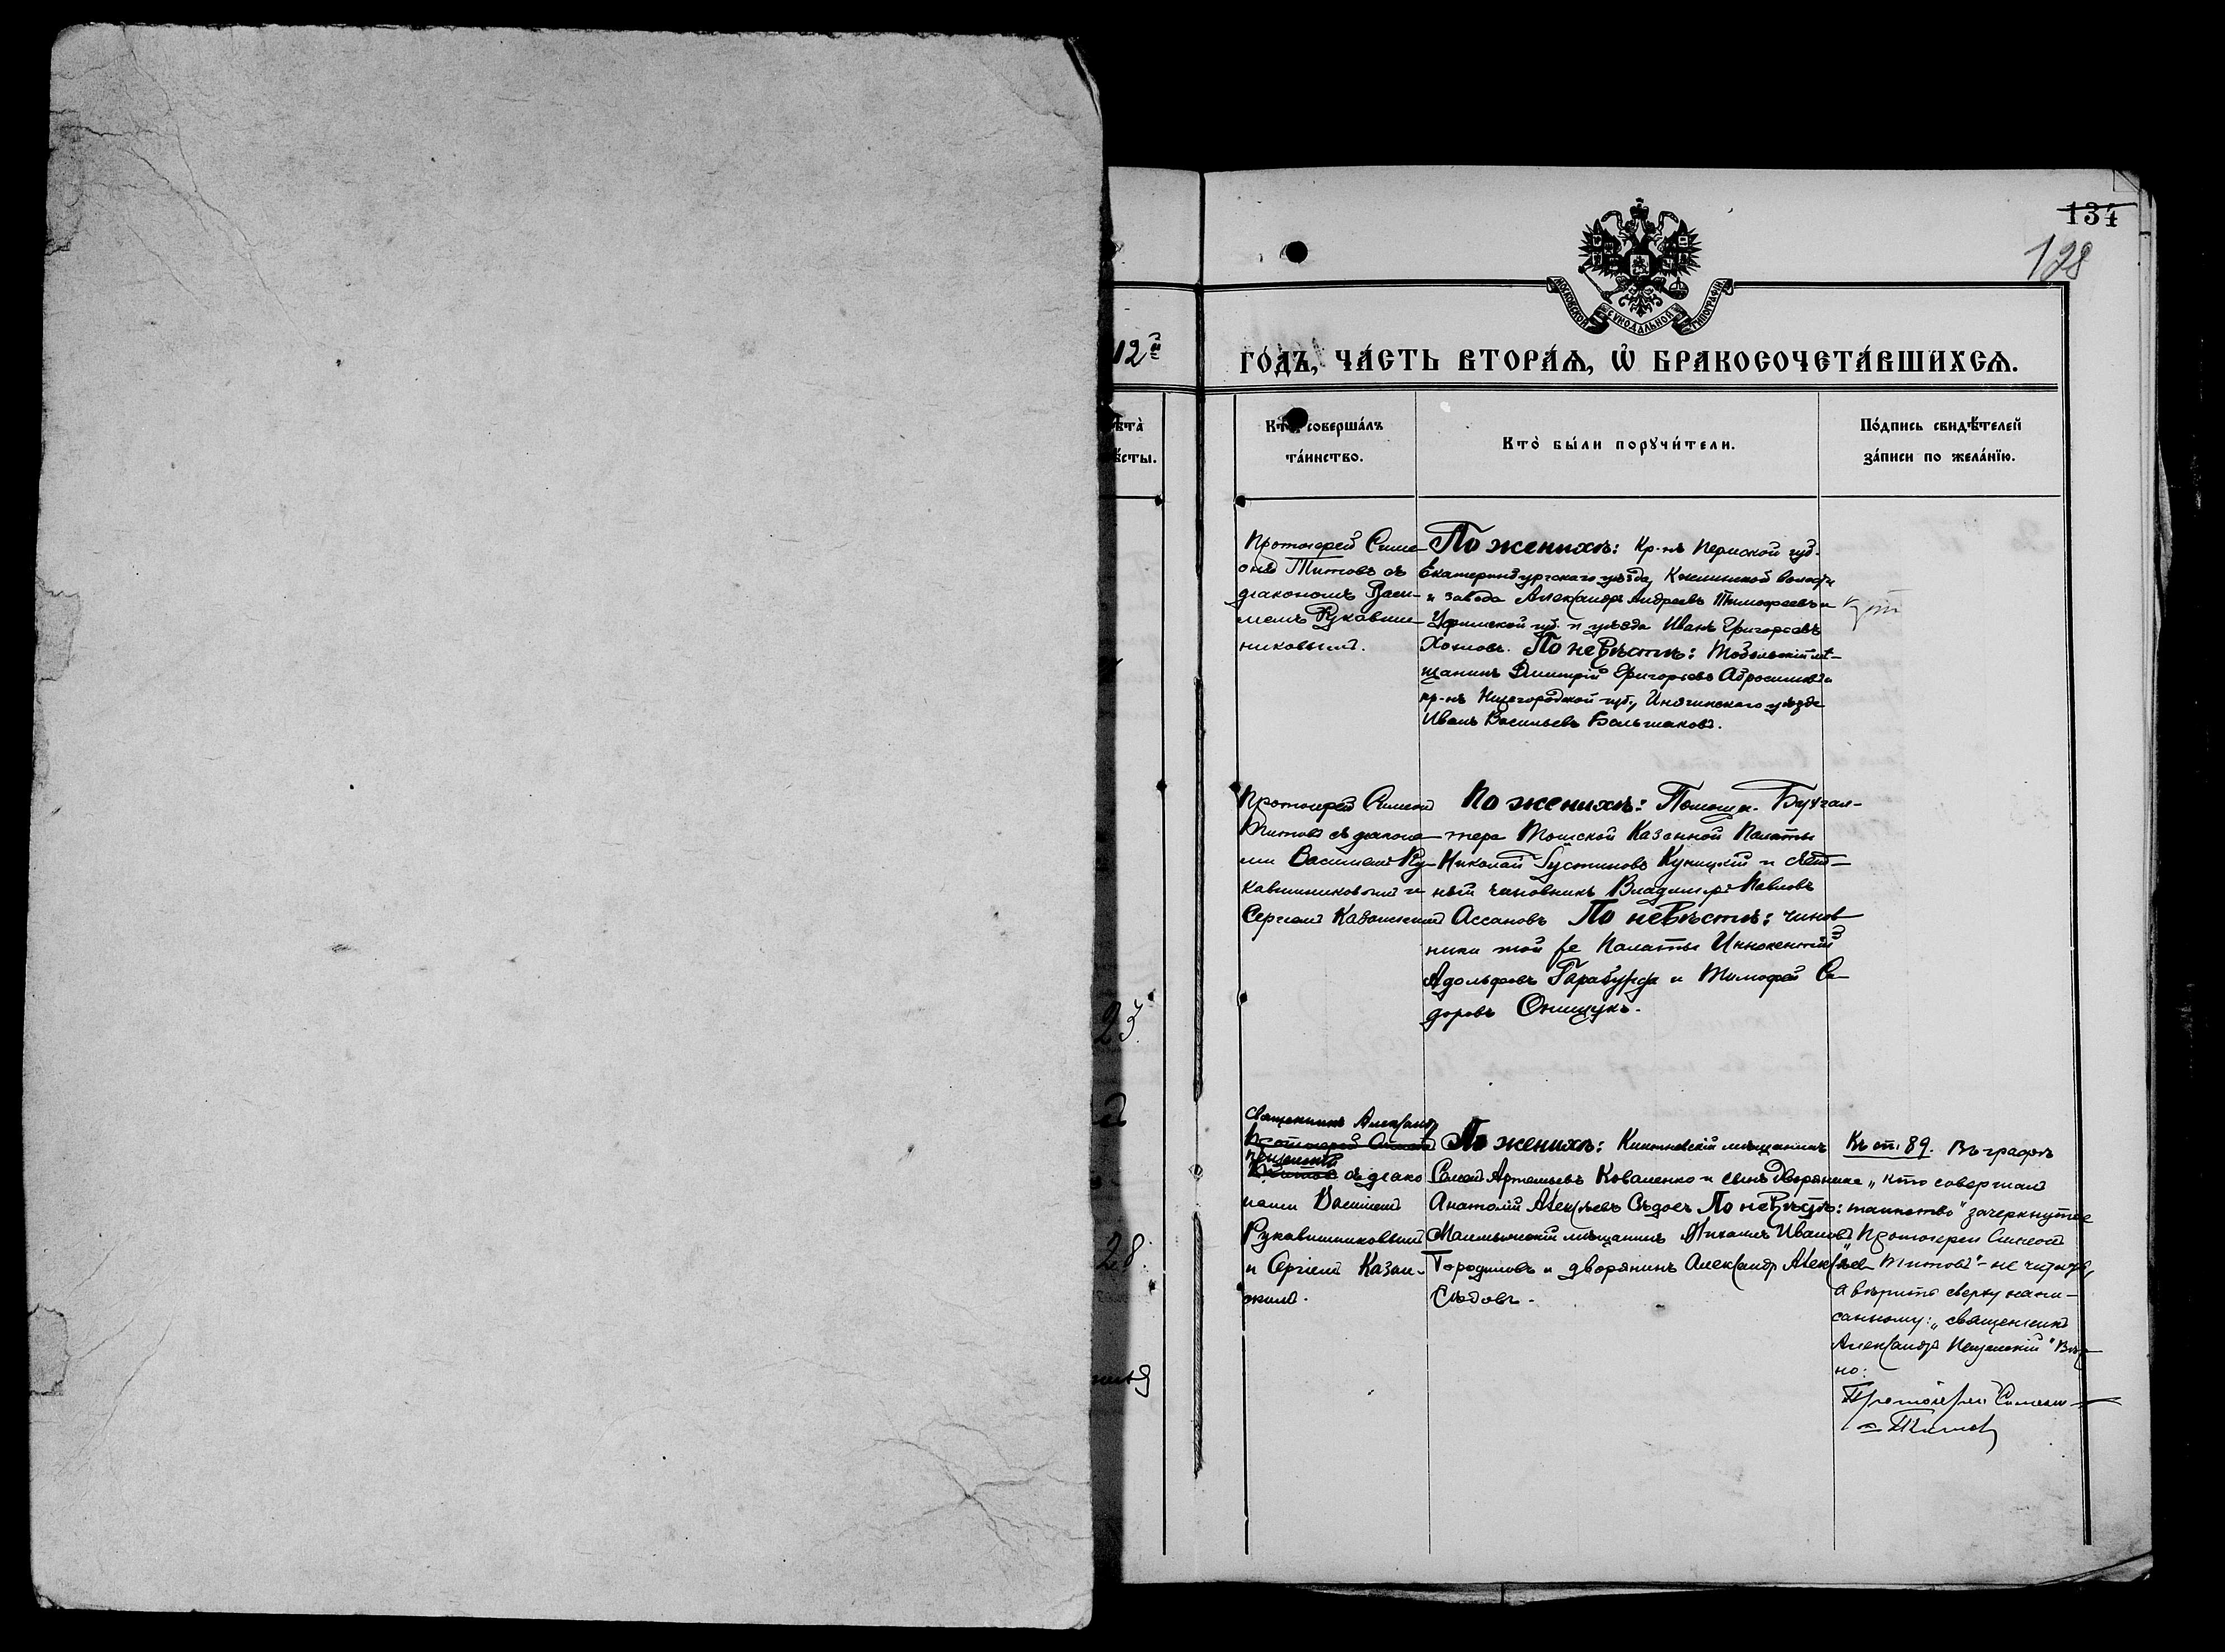 134
128
МОСКОВСКОЙ СѴНОДАЛЬНОЙ ТИПОГРАФІИ
12й
ГО́ДЪ, ЧА́СТЬ ВТОРА́Ѧ, Ѡ҆ БРАКОСОЧЕТА́ВШИХСѦ.
Кто̀ соверша́лъ
та́инство.
Кто̀ бы́ли порꙋчи́тели.
По́дпись свидѣ́телей
за́писи по жела́нїю.
ѣта̀
ѣсты.
Протоіерей Симе-
онъ Титовъ съ
діакономъ Васи-
ліемъ Рукавиш-
никовымъ.
По женихѣ: Кр-нъ Пермской губ.
Екатеринбургскаго уѣзда,
и завода Александръ Андреевъ Тимофеевъ и
Уфимской губ. и уѣзда Иванъ Григорьевъ
Хохловъ. По невѣстѣ: Тобольскій мѣ-
щанинъ Дмитрій Григорьевъ Абросимовъ и
кр-нъ Нижегородской губ.,
Иванъ Васильевъ Большаковъ.
Протоіерей Симеонъ
Титовъ съ діакона-
ми Василіемъ Ру-
кавишниковымъ и
Сергіемъ Казанскимъ
По женихѣ: Помощн. Бухгал-
тера Томской Казенной Палаты
Николай Густиновъ Куницкій и
чиновникъ Владиміръ Павловъ
Ассановъ По невѣстѣ: чинов-
ники той же Палаты Иннокентій
Адольфовъ Гарабурда и Тимофей Си-
доровъ Онищукъ.
23
28
Священникъ Александръ
Протоіерей Симеонъ
Титовъ съ діако-
нами Василіемъ
Рукавишниковымъ
и Сергіемъ Казан-
скимъ.
По женихѣ: мѣщанинъ
Артемьевъ Коваленко и сынъ дворянина
Анатолій Алексѣевъ Сѣдовъ По невѣстѣ:
мѣщанинъ Иванов
Городиловъ и дворянинъ Александръ Алексѣев
Сѣдовъ.
Къ ст. 89. Въ графѣ
„кто совершалъ
таинство" зачеркнутое
„Протоіерей Симеонъ
Титовъ" - не читать,
а вѣрить сверху напи-
санному: „священникъ
Александръ " Вѣр-
но:
Протоіерей Симеон
Титов